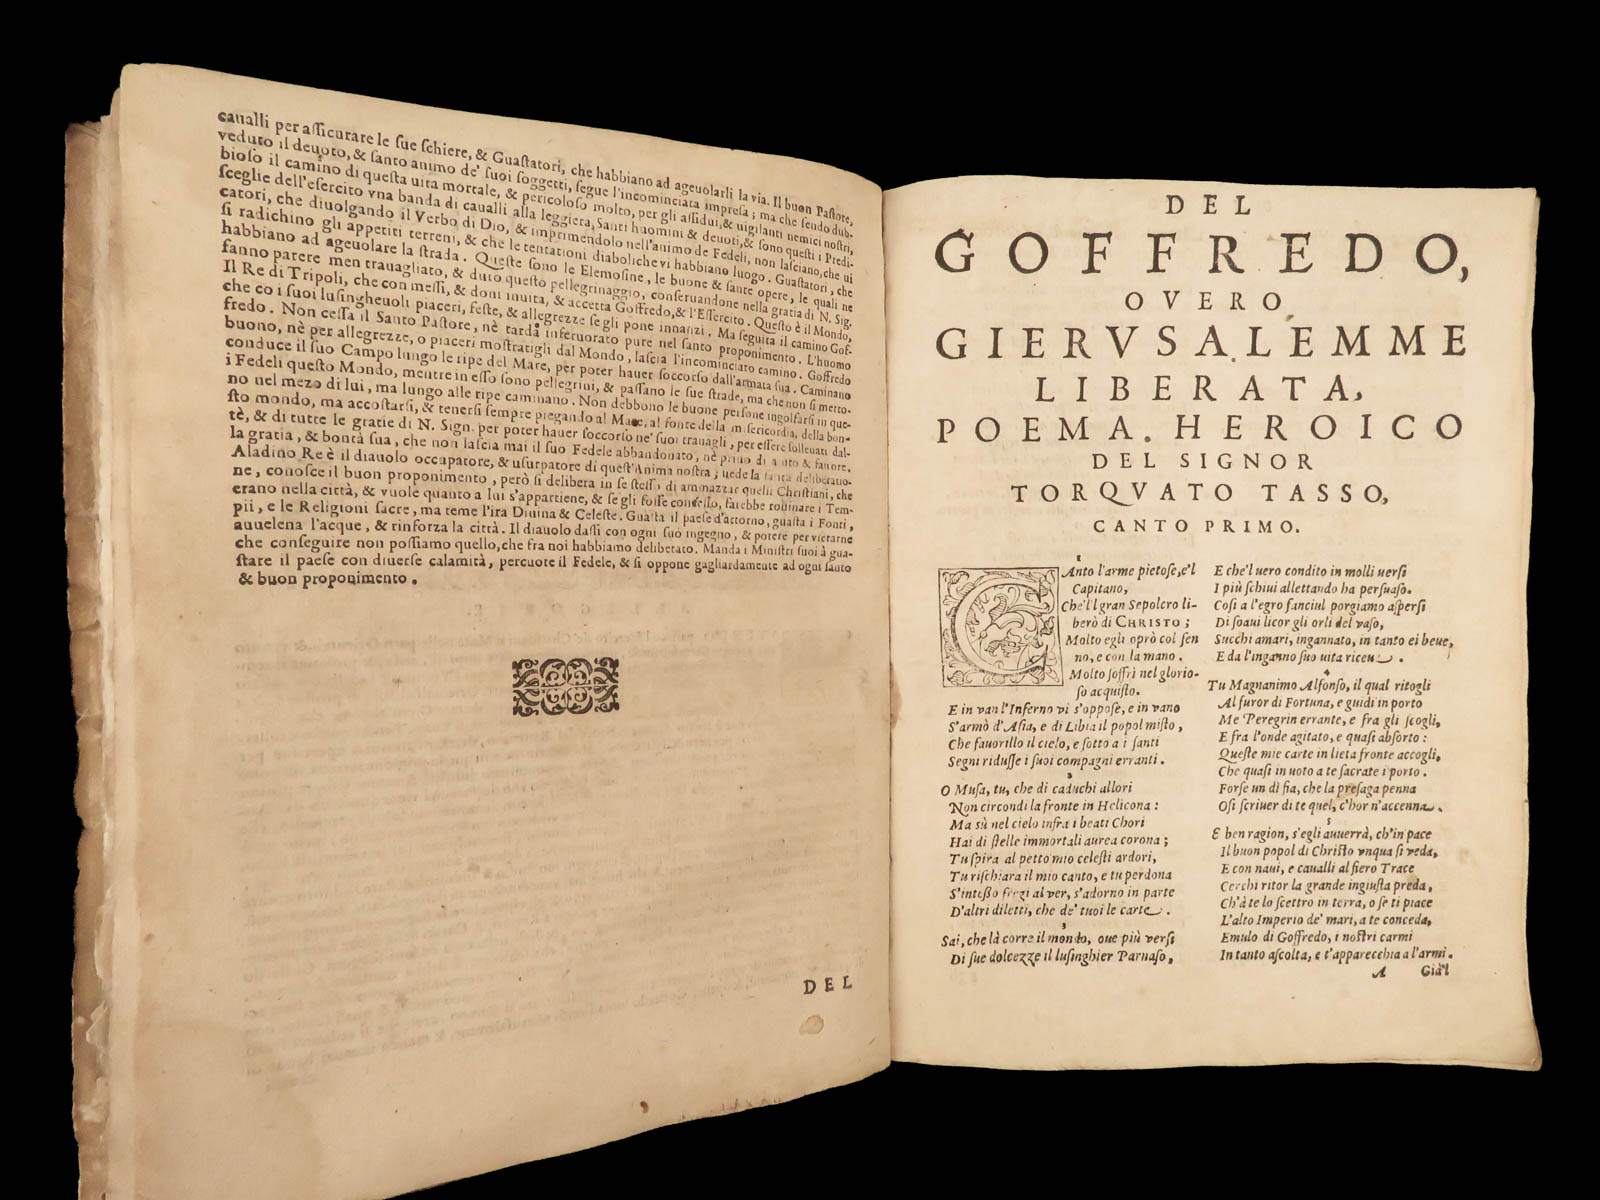 caualli per assicurare le sue schiere, & Guastatori, che habbiano ad ageuolarli la via. Il buon Pastore,
veduto il deuoto, & santo animo de' suoi soggetti, segue l'incominciata impresa; ma che sendo dub-
bioso il camino di questa uita mortale, & pericoloso molto, per gli assidui, & uigilanti nemici nostri,
sceglie dell'esercito vna banda di caualli alla leggiera, Santi huomini & deuoti, & sono questi i Predi-
catori, che diuolgando il Verbo di Dio, & imprimendolo nell'animo de Fedeli, non lasciano, che ui
si radichino gli appetiti terreni, & che le tentationi diaboliche vi habbiano luogo. Guastatori, che
habbiano ad ageuolare la strada. Queste sono le Elemosine, le buone & sante opere, le quali ne
fanno parere men trauagliato, & duro questo pellegrinaggio, conseruandone nella gratia di N. Sig.
Il Re di Tripoli, che con messi, & doni inuita, & accetta Goffredo, & l'Essercito. Questo è il Mondo,
che co i suoi lusingheuoli piaceri, feste, & allegrezze se gli pone innanzi. Ma seguita il camino Gof-
fredo. Non cessa il Santo Pastore, nè tarda inferuorato pure nel santo proponimento. L'huomo
buono, nè per allegrezze, o piaceri mostratigli dal Mondo, lascia l'incominciato camino. Goffredo
conduce il suo Campo lungo le ripe del Mare, per poter hauer soccorso dall'armata sua. Caminano
i Fedeli questo Mondo, mentre in esso sono pellegrini, & passano le sue strade, ma che non si metto-
no nel mezo di lui, ma lungo alle ripe caminano. Non debbono le buone persone ingolfarsi in que-
sto mondo, ma accostarsi, & tenersi sempre piegando al Mare, al fonte della misericordia, della bon-
tè, & di tutte le gratie di N. Sign. per poter hauer soccorso ne' suoi trauagli, per essere solleuati dal-
la gratia, & bontà sua, che non lascia mai il suo Fedele abbandonato, nè priuo di aiuto & fauore.
Aladino Re è il diauolo occupatore, & usurpatore di quest'Anima nostra; uede la santa deliberatio-
ne, conosce il buon proponimento, però si delibera in se stesso, di ammazzar quelli Christiani, che
erano nella città, & vuole quanto a lui s'appartiene, & se gli fosse concesso, farebbe rouinare i Tem-
pii, e le Religioni sacre, ma teme l'ira Diuina & Celeste. Guasta il paese d'attorno, guasta i Fonti,
auuelena l'acque, & rinforza la città. Il diauolo dassi con ogni suo ingegno, & potere per vietarne
che conseguire non possiamo quello, che fra noi habbiamo deliberato. Manda i Ministri suoi à gua-
stare il paese con diuerse calamità, percuote il Fedele, & si oppone gagliardamente ad ogni santo
& buon proponimento.
DEL
DEL
GOFFREDO,
OVERO
GIERVSALEMME
LIBERATA,
POEMA HEROICO
DEL SIGNOR
TORQVATO TASSO,
CANTO PRIMO.
CAnto l'arme pietose, e'l
Capitano,
Che'l gran Sepolcro li-
berò di CHRISTO;
Molto egli oprò col sen
no, e con la mano.
Molto soffrì nel glorio-
so acquisto.
E in van l'Inferno vi s'oppose, e in vano
S'armò d'Asia, e di Libia il popol misto,
Che fauorillo il cielo, e sotto a i santi
Segni ridusse i suoi compagni erranti.
2
O Musa, tu, che di caduchi allori
Non circondi la fronte in Helicona:
Ma sù nel cielo infra i beati Chori
Hai di stelle immortali aurea corona;
Tu spira al petto mio celesti ardori,
Tu rischiara il mio canto, e tu perdona
S'intesso fregi al ver, s'adorno in parte
D'altri diletti, che de' tuoi le carte.
3
Sai, che là corre il mondo, oue più versi
Di sue dolcezze il lusinghier Parnaso,
E che'l uero condito in molli uersi
I più schiui allettando ha persuaso.
Così a l'egro fanciul porgiamo aspersi
Di soaui licor gli orli del vaso,
Succhi amari, ingannato, in tanto ei beue,
E da l'inganno suo uita riceue.
4
Tu Magnanimo Alfonso, il qual ritogli
Al furor di Fortuna, e guidi in porto
Me Peregrin errante, e fra gli scogli,
E fra l'onde agitato, e quasi absorto:
Queste mie carte in lieta fronte accogli,
Che quasi in uoto a te sacrate i porto.
Forse un dì fia, che la presaga penna
Osi scriuer di te quel, c'hor n'accenna.
5
E ben ragion, s'egli auuerrà, ch'in pace
Il buon popol di Christo vnqua si veda,
E con naui, e caualli al fiero Trace
Cerchi ritor la grande ingiusta preda,
Ch'à te lo scettro in terra, o se ti piace
L'alto Imperio de' mari, a te conceda,
Emulo di Goffredo, i nostri carmi
In tanto ascolta, e t'apparecchia a l'armi.
A Già'l